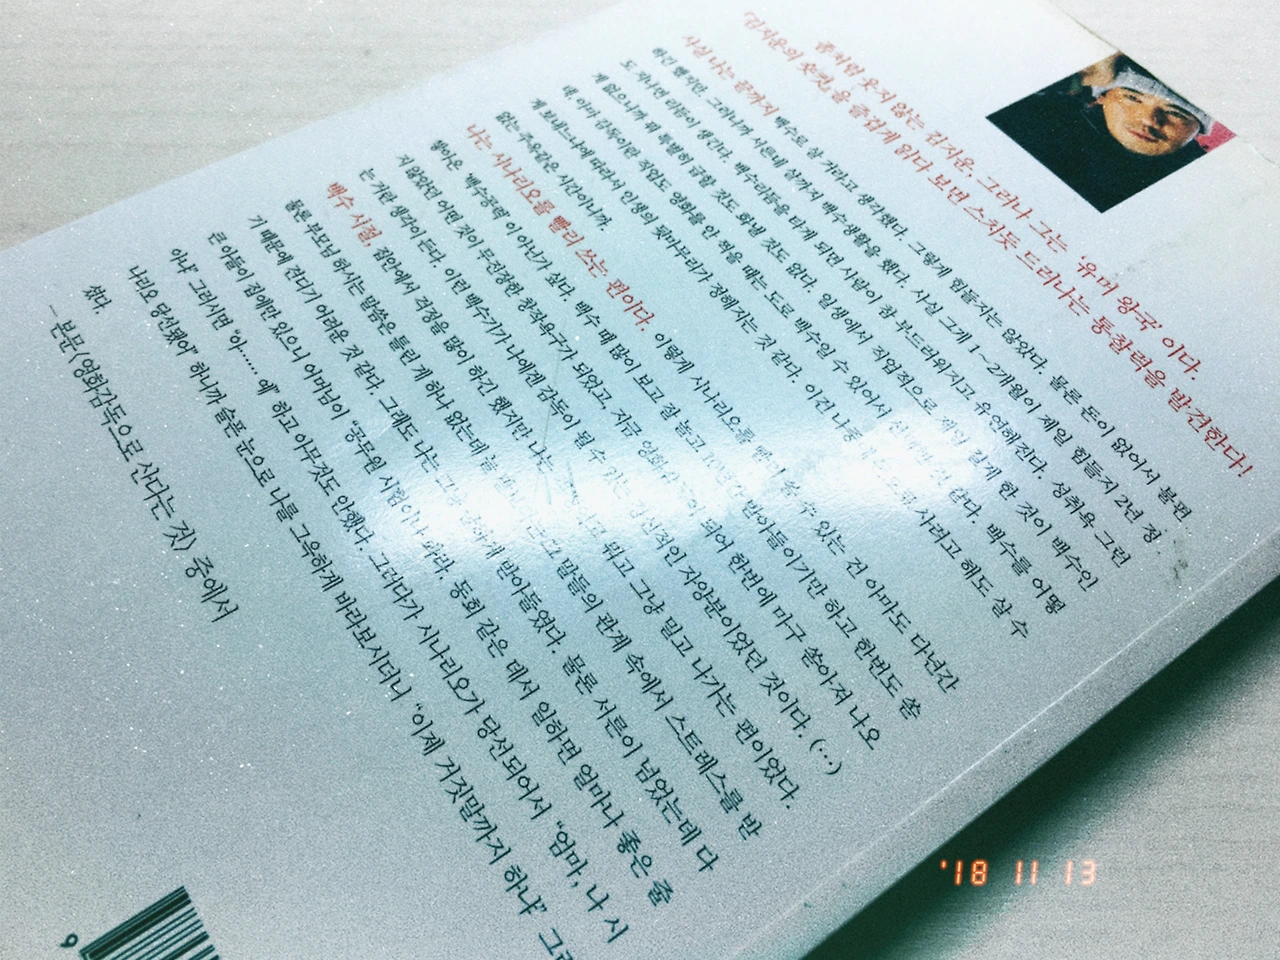 좀처럼 웃지 않는 김지운, 그러나 그는 '유머 왕국' 이다.
『김지운의 숏컷』을 즐겁게 읽다 보면 스치듯 드러나는 통찰력을 발견한다!
사실 나는 끝까지 백수로 살 거라고 생각했다. 그렇게 힘들지는 않았다. 물론 돈이 없어서 불편
하긴 했지만. 그러니까 서른네 살까지 백수생활을 했다. 사실 그게 1~2개월이 제일 힘들지 2년 정
도 지나면 리듬이 생긴다. 백수리듬을 타게 되면 사람이 참 부드러워지고 유연해진다. 성취욕 그런
게 없으니까 뭐 특별히 급할 것도 화낼 것도 없다. 일생에서 직업적으로 제일 길게 한 것이 백수인
데, 아마 감독이란 직업도 영화를 안 찍을 때는 도로 백수일 수 있어서 답다. 백수를 어떻
게 보내느냐에 따라서 인생의 뒷마무리가 정해지는 것 같다. 이건 나중 사려고 해도 살 수
없는 주옥같은 시간이니까.
나는 시나리오를 빨리 쓰는 편이다. 이렇게 시나리오를 수 있는 건 아마도 다년간
쌓아온 '백수공력' 이 아닌가 싶다. 백수 때 많이 보고 잘 놀고 받아들이기만 하고 한번도 쏟
지 않았던 어떤 것이 무진장한 창작욕구가 되었고, 지금 되어 한번에 마구 쏟아져 나오
는 거란 생각이 든다. 이런 백수기가 나에겐 감독이 될 수 정신적인 자양분이었던 것이다. (…)
백수 시절, 집안에서 걱정을 많이 하긴 했지만 나는 뭐고 그냥 믿고 나가는 편이었다.
물론 부모님 하시는 말씀은 틀린 게 하나 없는데 말들의 관계 속에서 스트레스를 받
기 때문에 견디기 어려운 것 같다. 그래도 나는 받아들였다. 물론 서른이 넘었는데 다
큰 아들이 집에만 있으니 어머님이 "공무원 시험이나 봐라. 동회 같은 데서 일하면 얼마나 좋은 줄
아냐" 그러시면 "아…… 예" 하고 아무것도 안했다. 그러다가 시나리오가 당선되어서 "엄마, 나 시
나리오 당선됐어" 하니까 슬픈 눈으로 나를 그윽하게 바라보시더니 "이제 거짓말까지 하냐"
셨다.
— 본문 〈영화감독으로 산다는 것〉 중에서
9
'18 11 13